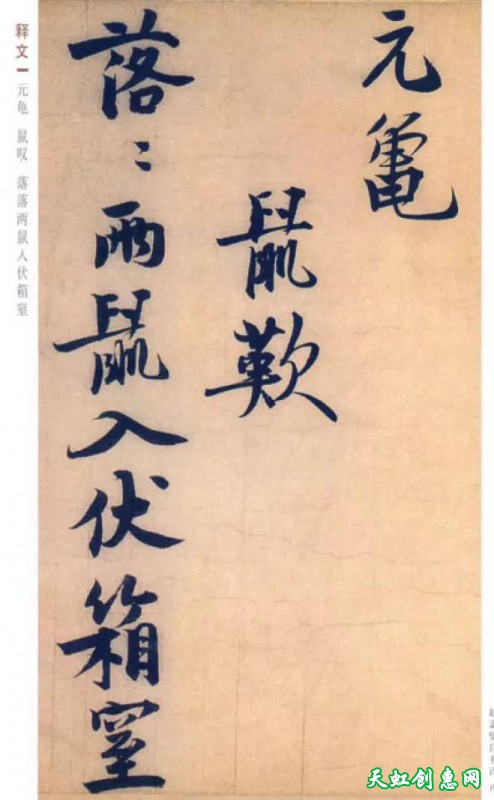 元龜
鼠歎
落〻兩鼠入伏箱窒
释文 元龟 鼠叹 落落两鼠人伏箱窒
天虹创惠网